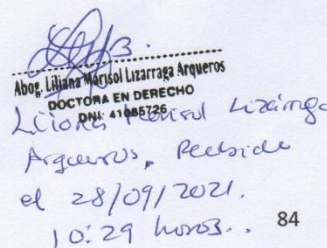 Abog. Liliana Marisol Lizarraga Arqueros
DOCTORA EN DERECHO
DNI: 41085726
Liliana Marisol Lizárraga
Arqueros, Recibido
el 28/09/2021.
10:29 horas..
84